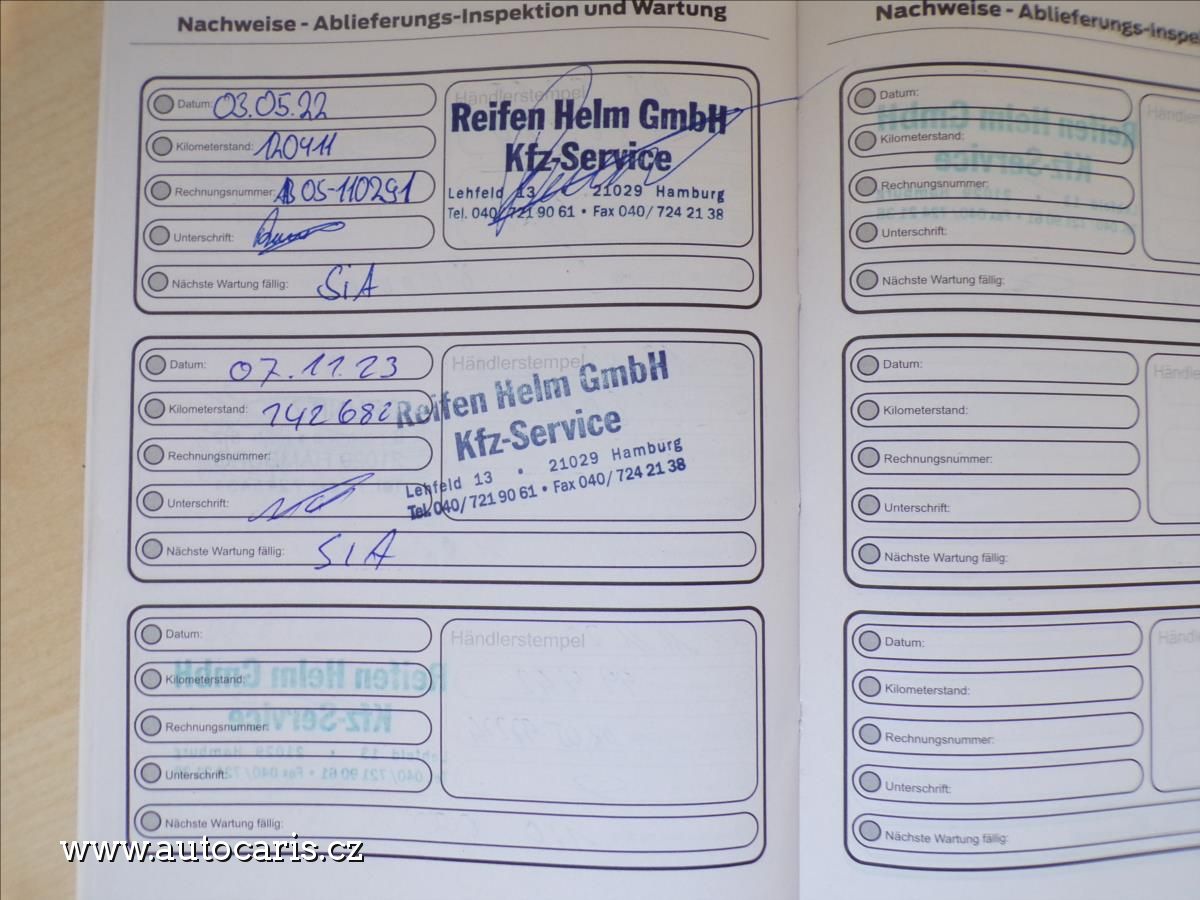 Nachweise - Ablieferungs-Inspektion und Wartung
Datum: 03.05.22
Kilometerstand: 120411
Rechnungsnummer: 05-110291
Unterschrift:
Nächste Wartung fällig: SiA
Händlerstempel
Reifen Helm GmbH
Kfz-Service
Lehfeld 13 • 21029 Hamburg
Tel. 040/ 721 90 61 • Fax 040/ 724 21 38
Datum: 07.11.23
Kilometerstand: 142682
Rechnungsnummer:
Unterschrift:
Nächste Wartung fällig: SIA
Händlerstempel
Reifen Helm GmbH
Kfz-Service
Lehfeld 13 • 21029 Hamburg
Tel. 040/ 721 90 61 • Fax 040/ 724 21 38
Datum:
Kilometerstand:
Rechnungsnummer:
Unterschrift:
Nächste Wartung fällig:
Händlerstempel
Nachweise - Ablieferungs-Inspe
Datum:
Kilometerstand:
Rechnungsnummer:
Unterschrift:
Nächste Wartung fällig:
Händle
Datum:
Kilometerstand:
Rechnungsnummer:
Unterschrift:
Nächste Wartung fällig:
Händ
Datum:
Kilometerstand:
Rechnungsnummer:
Unterschrift:
Nächste Wartung fällig:
Händ
www.autocaris.cz